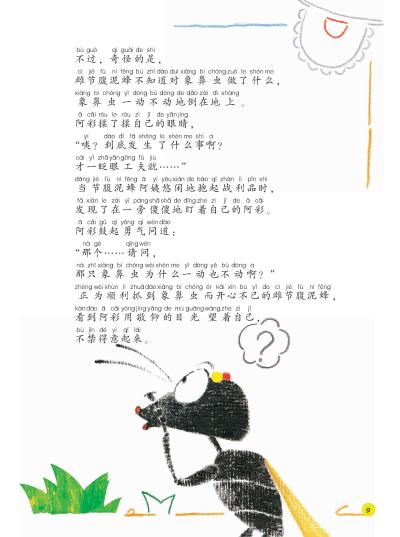 bù guò qí guài de shì
不过，奇怪的是，
cí jié fù ní fēng bù zhī dào duì xiàng bí chóng zuò le shén me
雌节腹泥蜂不知道对象鼻虫做了什么，
xiàng bí chóng yī dòng bù dòng de dǎo zài dì shàng
象鼻虫一动不动地倒在地上。
ā cǎi róu le róu zì jǐ de yǎn jing
阿彩揉了揉自己的眼睛，
yí dào dǐ fā shēng le shén me shì a
“咦？到底发生了什么事啊？
cái yī zhǎ yǎn gōng fu jiù
才一眨眼工夫就……”
dāng jié fù ní fēng ā yí yōu xián de bào qǐ zhàn lì pǐn shí
当节腹泥蜂阿姨悠闲地抱起战利品时，
fā xiàn le zài yī páng shǎ shǎ de dīng zhe zì jǐ de ā cǎi
发现了在一旁傻傻地盯着自己的阿彩。
ā cǎi gǔ qǐ yǒng qì wèn dào
阿彩鼓起勇气问道：
nà ge qǐng wèn
“那个……请问，
nà zhī xiàng bí chóng wèi shén me yī dòng yě bù dòng a
那只象鼻虫为什么一动也不动啊？”
zhèng wèi shùn lì zhuā dào xiàng bí chóng ér kāi xīn bù yǐ de cí jié fù ní fēng
正为顺利抓到象鼻虫而开心不已的雌节腹泥蜂，
kàn dào ā cǎi yòng jìng yǎng de mù guāng wàng zhe zì jǐ
看到阿彩用敬仰的目光望着自己，
bù jīn dé yì qǐ lái
不禁得意起来。
?
9